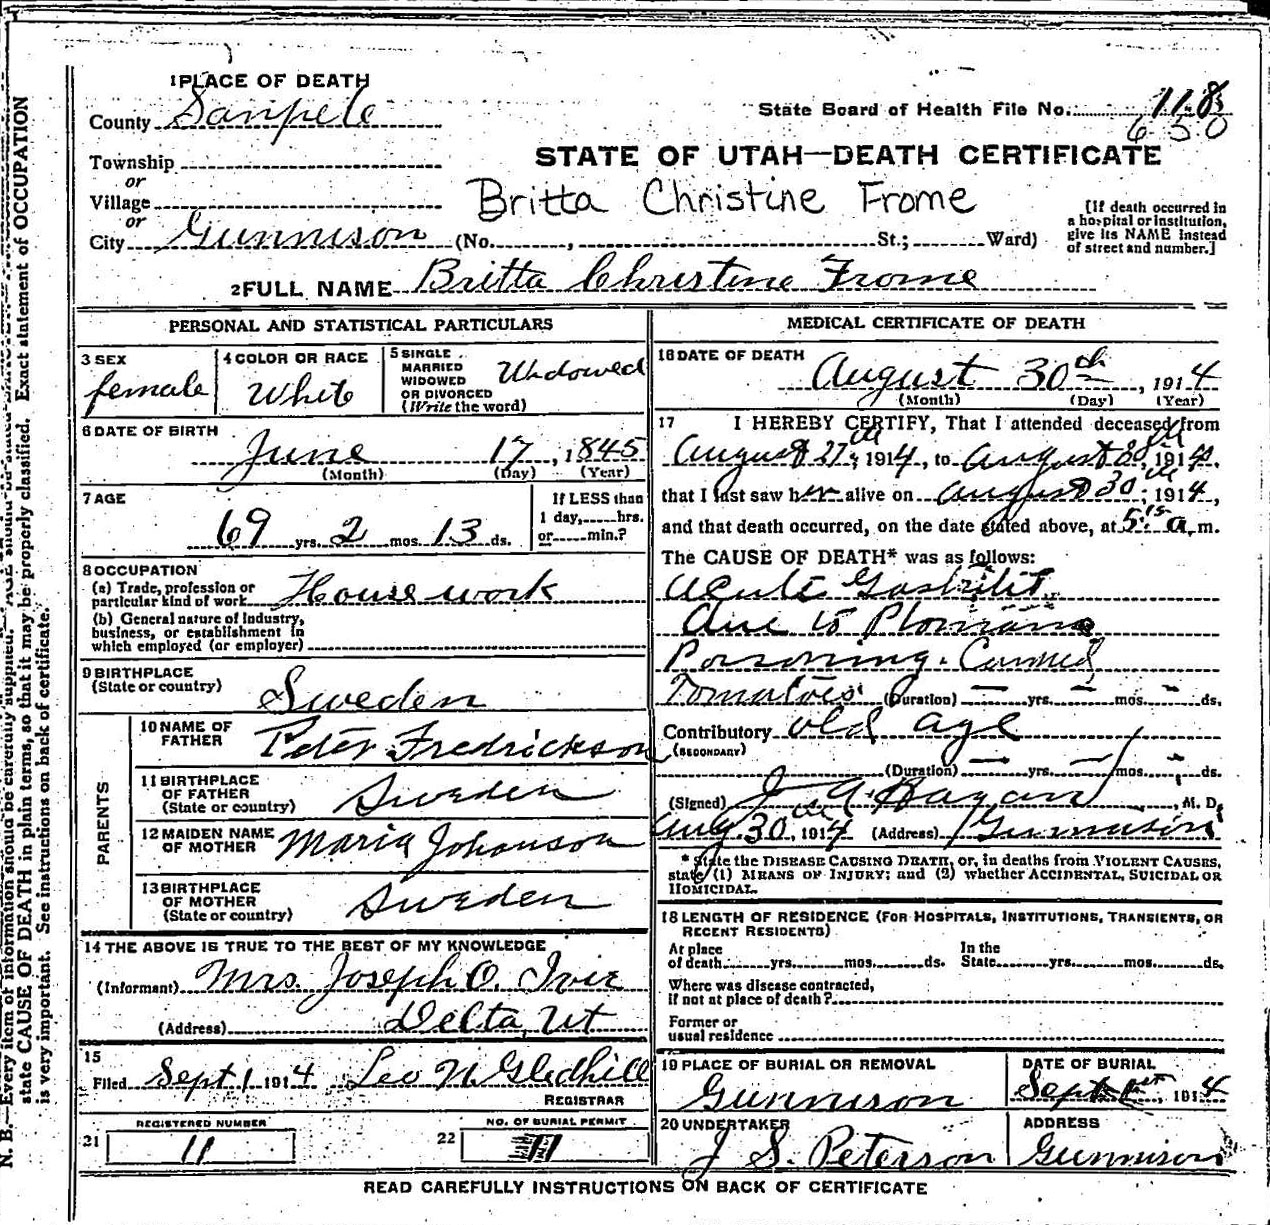 1 PLACE OF DEATH
County Sanpete
State Board of Health File No. 118
650
Township
or
Village
or
City Gunnison (No. , St.; Ward)
STATE OF UTAH—DEATH CERTIFICATE
Britta Christine Frome
[If death occurred in
a hospital or institution,
give its NAME instead
of street and number.]
2 FULL NAME Britta Christine Frome
PERSONAL AND STATISTICAL PARTICULARS
3 SEX
female
4 COLOR OR RACE
White
5 SINGLE
MARRIED
WIDOWED
OR DIVORCED
(Write the word)
Widowed
6 DATE OF BIRTH
June 17, 1845
(Month) (Day) (Year)
7 AGE
69 yrs. 2 mos. 13 ds.
If LESS than
1 day, hrs.
or min.?
8 OCCUPATION
(a) Trade, profession or
particular kind of work House work
(b) General nature of industry,
business, or establishment in
which employed (or employer)
9 BIRTHPLACE
(State or country)
Sweden
PARENTS
10 NAME OF
FATHER
Peter Fredrickson
11 BIRTHPLACE
OF FATHER
(State or country)
Sweden
12 MAIDEN NAME
OF MOTHER
Maria Johanson
13 BIRTHPLACE
OF MOTHER
(State or country)
Sweden
14 THE ABOVE IS TRUE TO THE BEST OF MY KNOWLEDGE
(Informant) Mrs. Joseph O. Ivie
(Address) Delta, Ut
15
Filed Sept 1 1914 Leo N. Gledhill
REGISTRAR
21
REGISTERED NUMBER
11
22
NO. OF BURIAL PERMIT
11
MEDICAL CERTIFICATE OF DEATH
16 DATE OF DEATH
August 30th, 1914
(Month) (Day) (Year)
17 I HEREBY CERTIFY, That I attended deceased from
August 27th, 1914, to August 30th, 1914,
that I last saw her alive on August 30th, 1914,
and that death occurred, on the date stated above, at 5:15 a. m.
The CAUSE OF DEATH* was as follows:
Acute Gastritis
due to Ptomaine
Poisoning. Canned
Tomatoes (Duration) — yrs. — mos. - ds.
Contributory old age
(SECONDARY)
(Duration) — yrs. — mos. ds.
(Signed) J. A. Hagan, M. D.
Aug 30th, 1914 (Address) Gunnison
* State the DISEASE CAUSING DEATH, or, in deaths from VIOLENT CAUSES,
state (1) MEANS OF INJURY; and (2) whether ACCIDENTAL, SUICIDAL OR
HOMICIDAL.
18 LENGTH OF RESIDENCE (FOR HOSPITALS, INSTITUTIONS, TRANSIENTS, OR
RECENT RESIDENTS)
At place
of death yrs. mos. ds.
In the
State yrs. mos. ds.
Where was disease contracted,
if not at place of death?
Former or
usual residence
19 PLACE OF BURIAL OR REMOVAL
Gunnison
DATE OF BURIAL
Sept 1st, 1914
20 UNDERTAKER
J. S. Peterson
ADDRESS
Gunnison
READ CAREFULLY INSTRUCTIONS ON BACK OF CERTIFICATE
N. B.—Every item of information should be carefully supplied. AGE should be stated
state CAUSE OF DEATH in plain terms, so that it may be properly classified. Exact statement of OCCUPATION
is very important. See instructions on back of certificate.